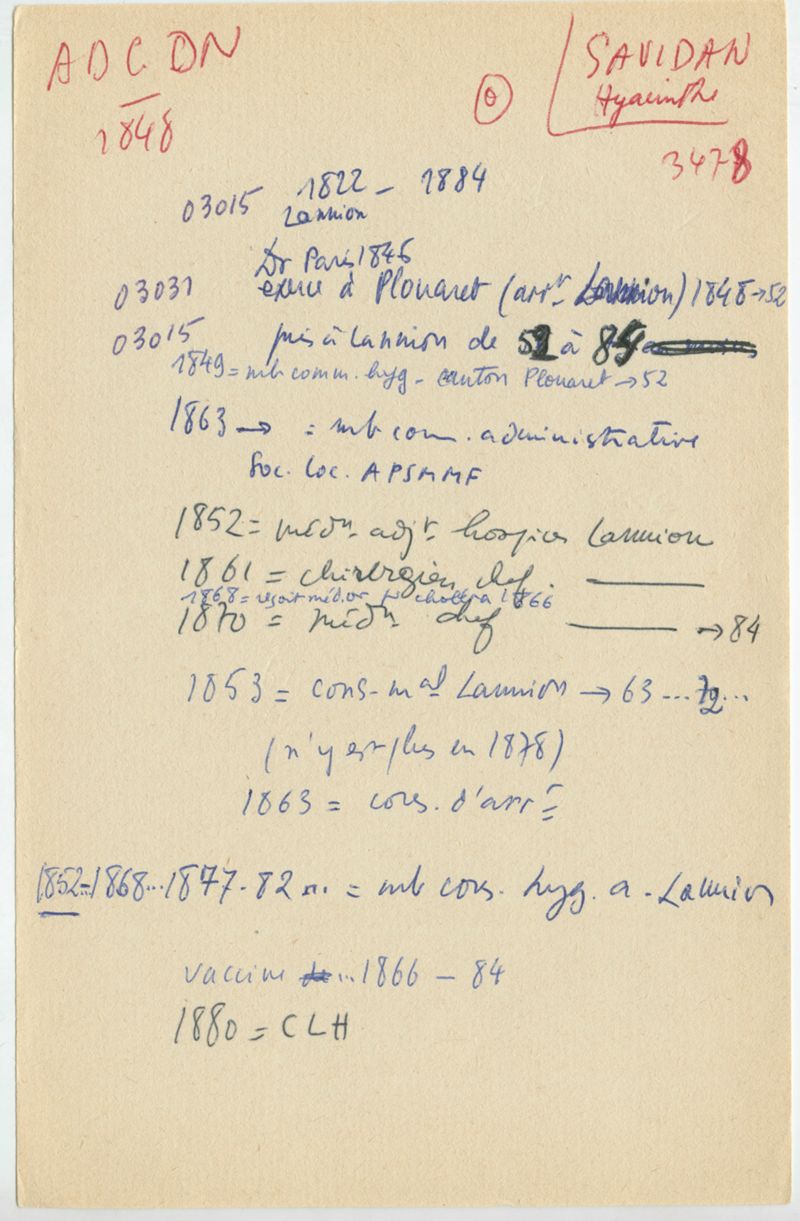 ADC DN
1848
θ
SAVIDAN
Hyacinthe
3478
03015 1822 - 1884
Lannion
Dr Paris 1846
03031 exerce à Plouaret (arrt Lannion) 1848 → 52
03015 puis à Lannion de 52 à 84
1849 = mb comm. hyg - canton Plouaret → 52
1863 → = mb com. administrative
Soc. loc. APSMMF
1852 = médn adjt hospices Lannion
1861 = chirurgien chef. ———
1868 = reçoit méd. or pr choléra 1866
1870 = médn chef ——— → 84
1853 = cons. mal Lannion → 63 ... 72 ...
(n'y est plus en 1878)
1863 = cons. d'arrt
1852 = 1868 ... 1877 - 82 ... = mb cons. hyg. a. Lannion
vaccine ... 1866 - 84
1880 = CLH